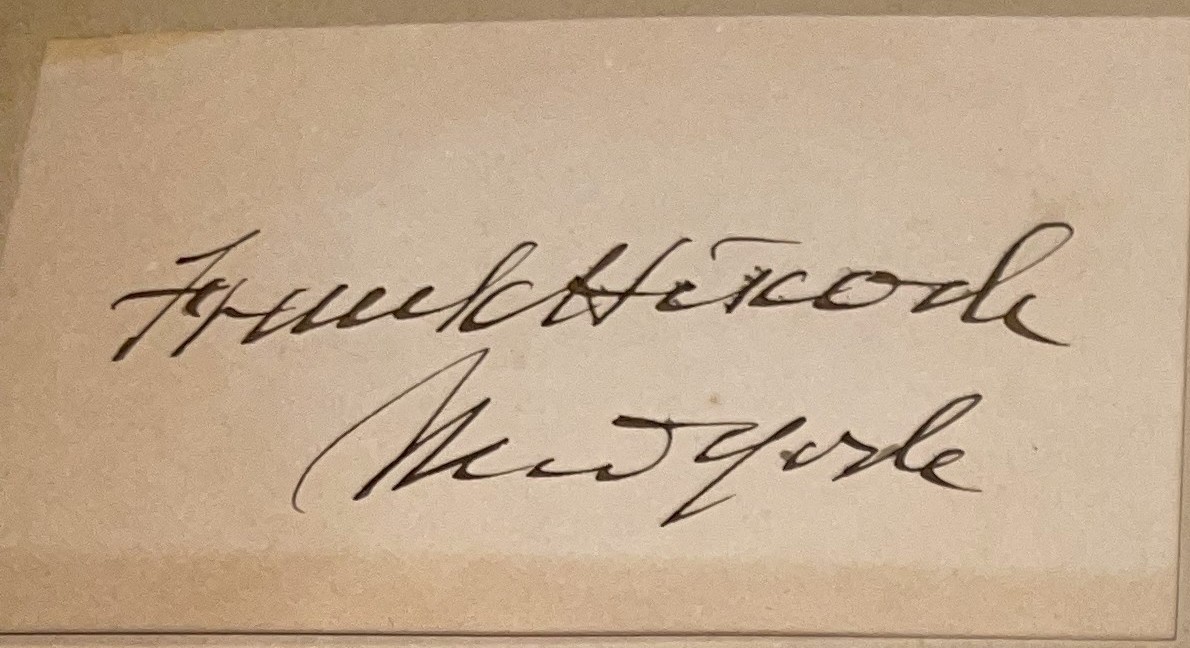 Frank Hiscock
New York